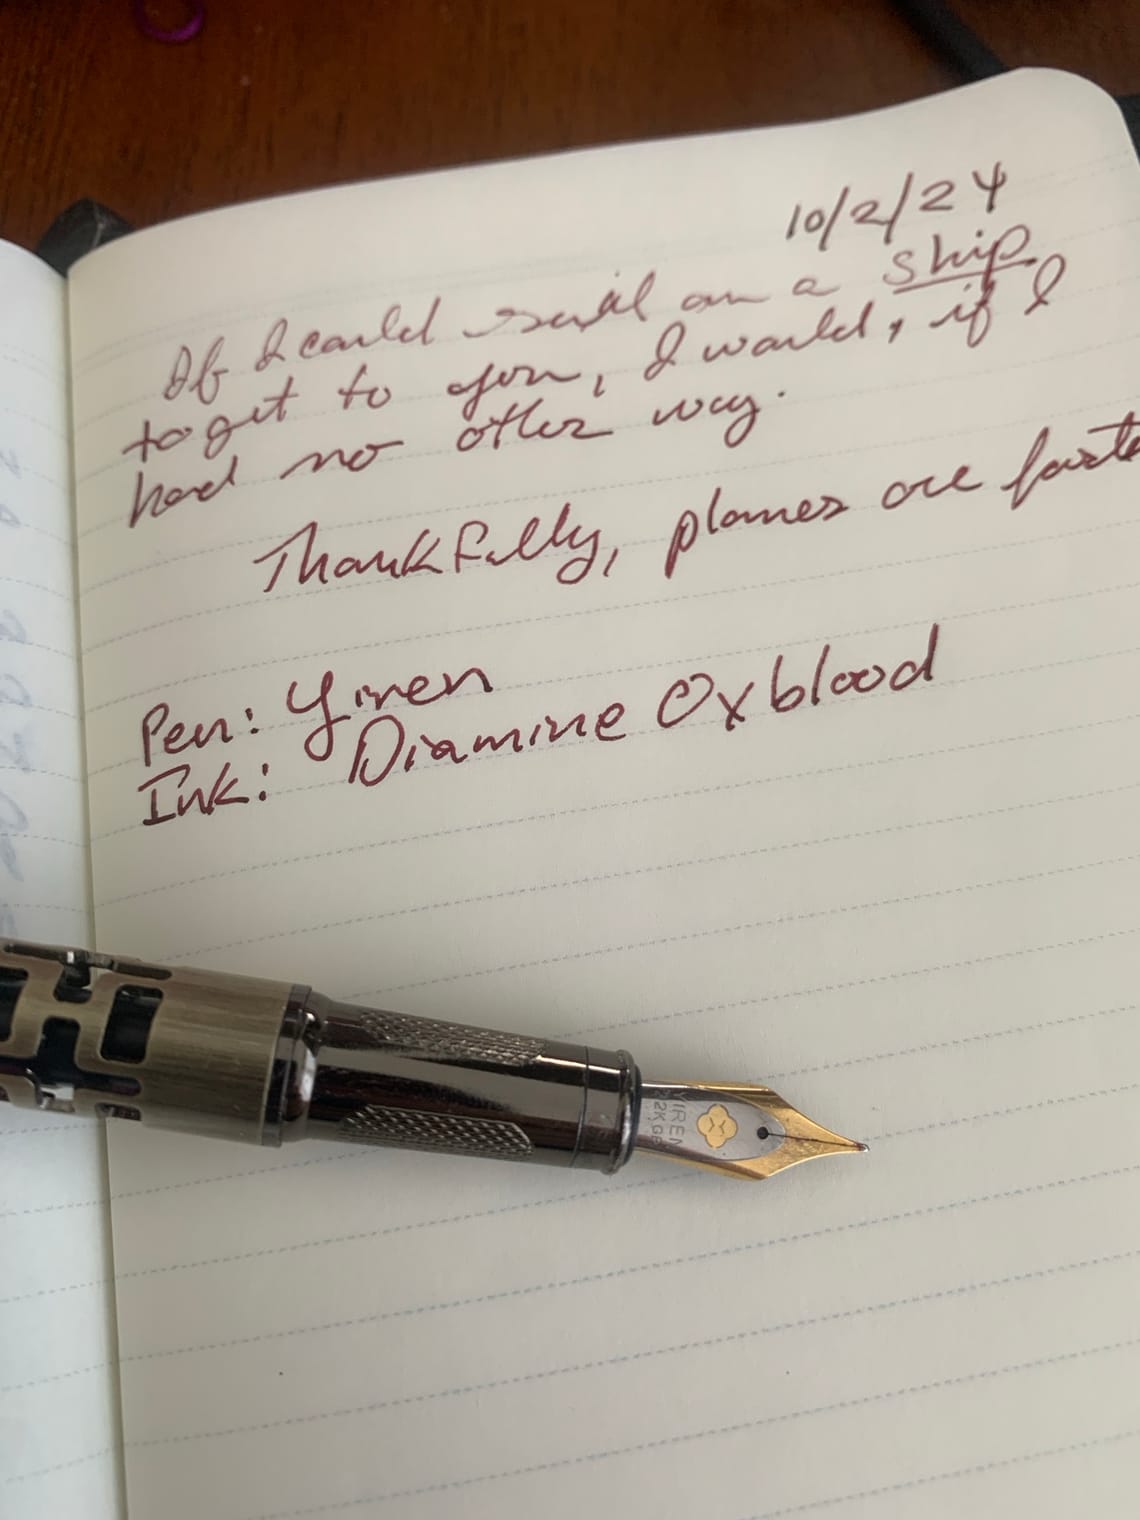 10/2/24
If I could sail on a ship
to get to you, I would, if I
had no other way.
Thankfully, planes are faste
Pen: Yiren
Ink: Diamine Oxblood
YIREN
22K GP